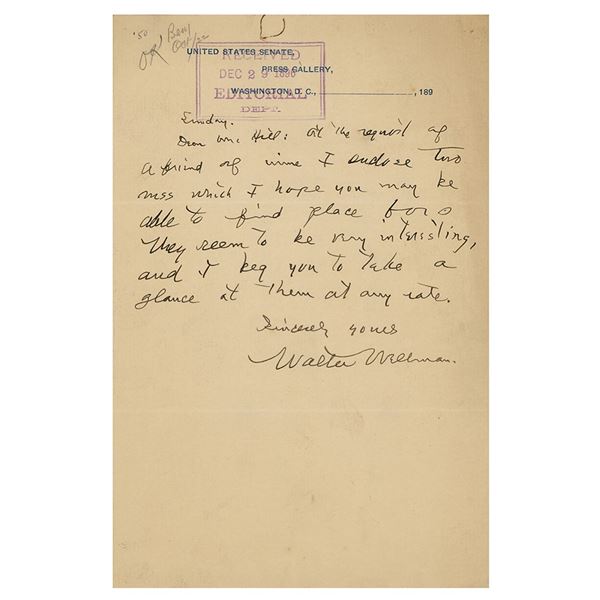 '50
OK
UNITED STATES SENATE,
PRESS GALLERY,
WASHINGTON, D. C., , 189
RECEIVED
DEC 29 1890
EDITORIAL
DEPT.
Sunday.
Dear Mr. Hill: At the request of
a friend of mine I enclose two
mss which I hope you may be
able to find place for.
They seem to be very interesting,
and I beg you to take a
glance at them at any rate.
Sincerely yours
Walter Wellman.